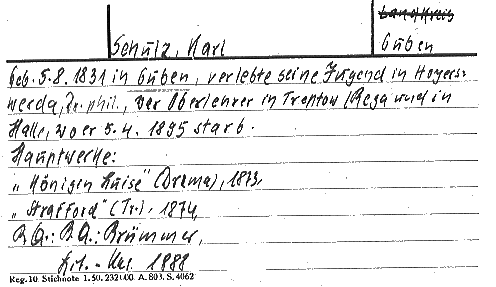 Landkreis
Schulz, Karl
Guben
Geb. 5.8.1831 in Guben, verlebte seine Jugend in Hoyers-
werda, Dr. phil., war Oberlehrer in Treptow/Rega und in
Halle, wo er 5.4.1895 starb.
Hauptwerke:
„Königen Luise" (Drama), 1873,
„Strafford" (Tr.), 1874,
B.A.: Brümmer,
Lit.-Kal. 1888
Reg.10. Stichnote 1. 50. 2321.00. A. 803. S. 4062